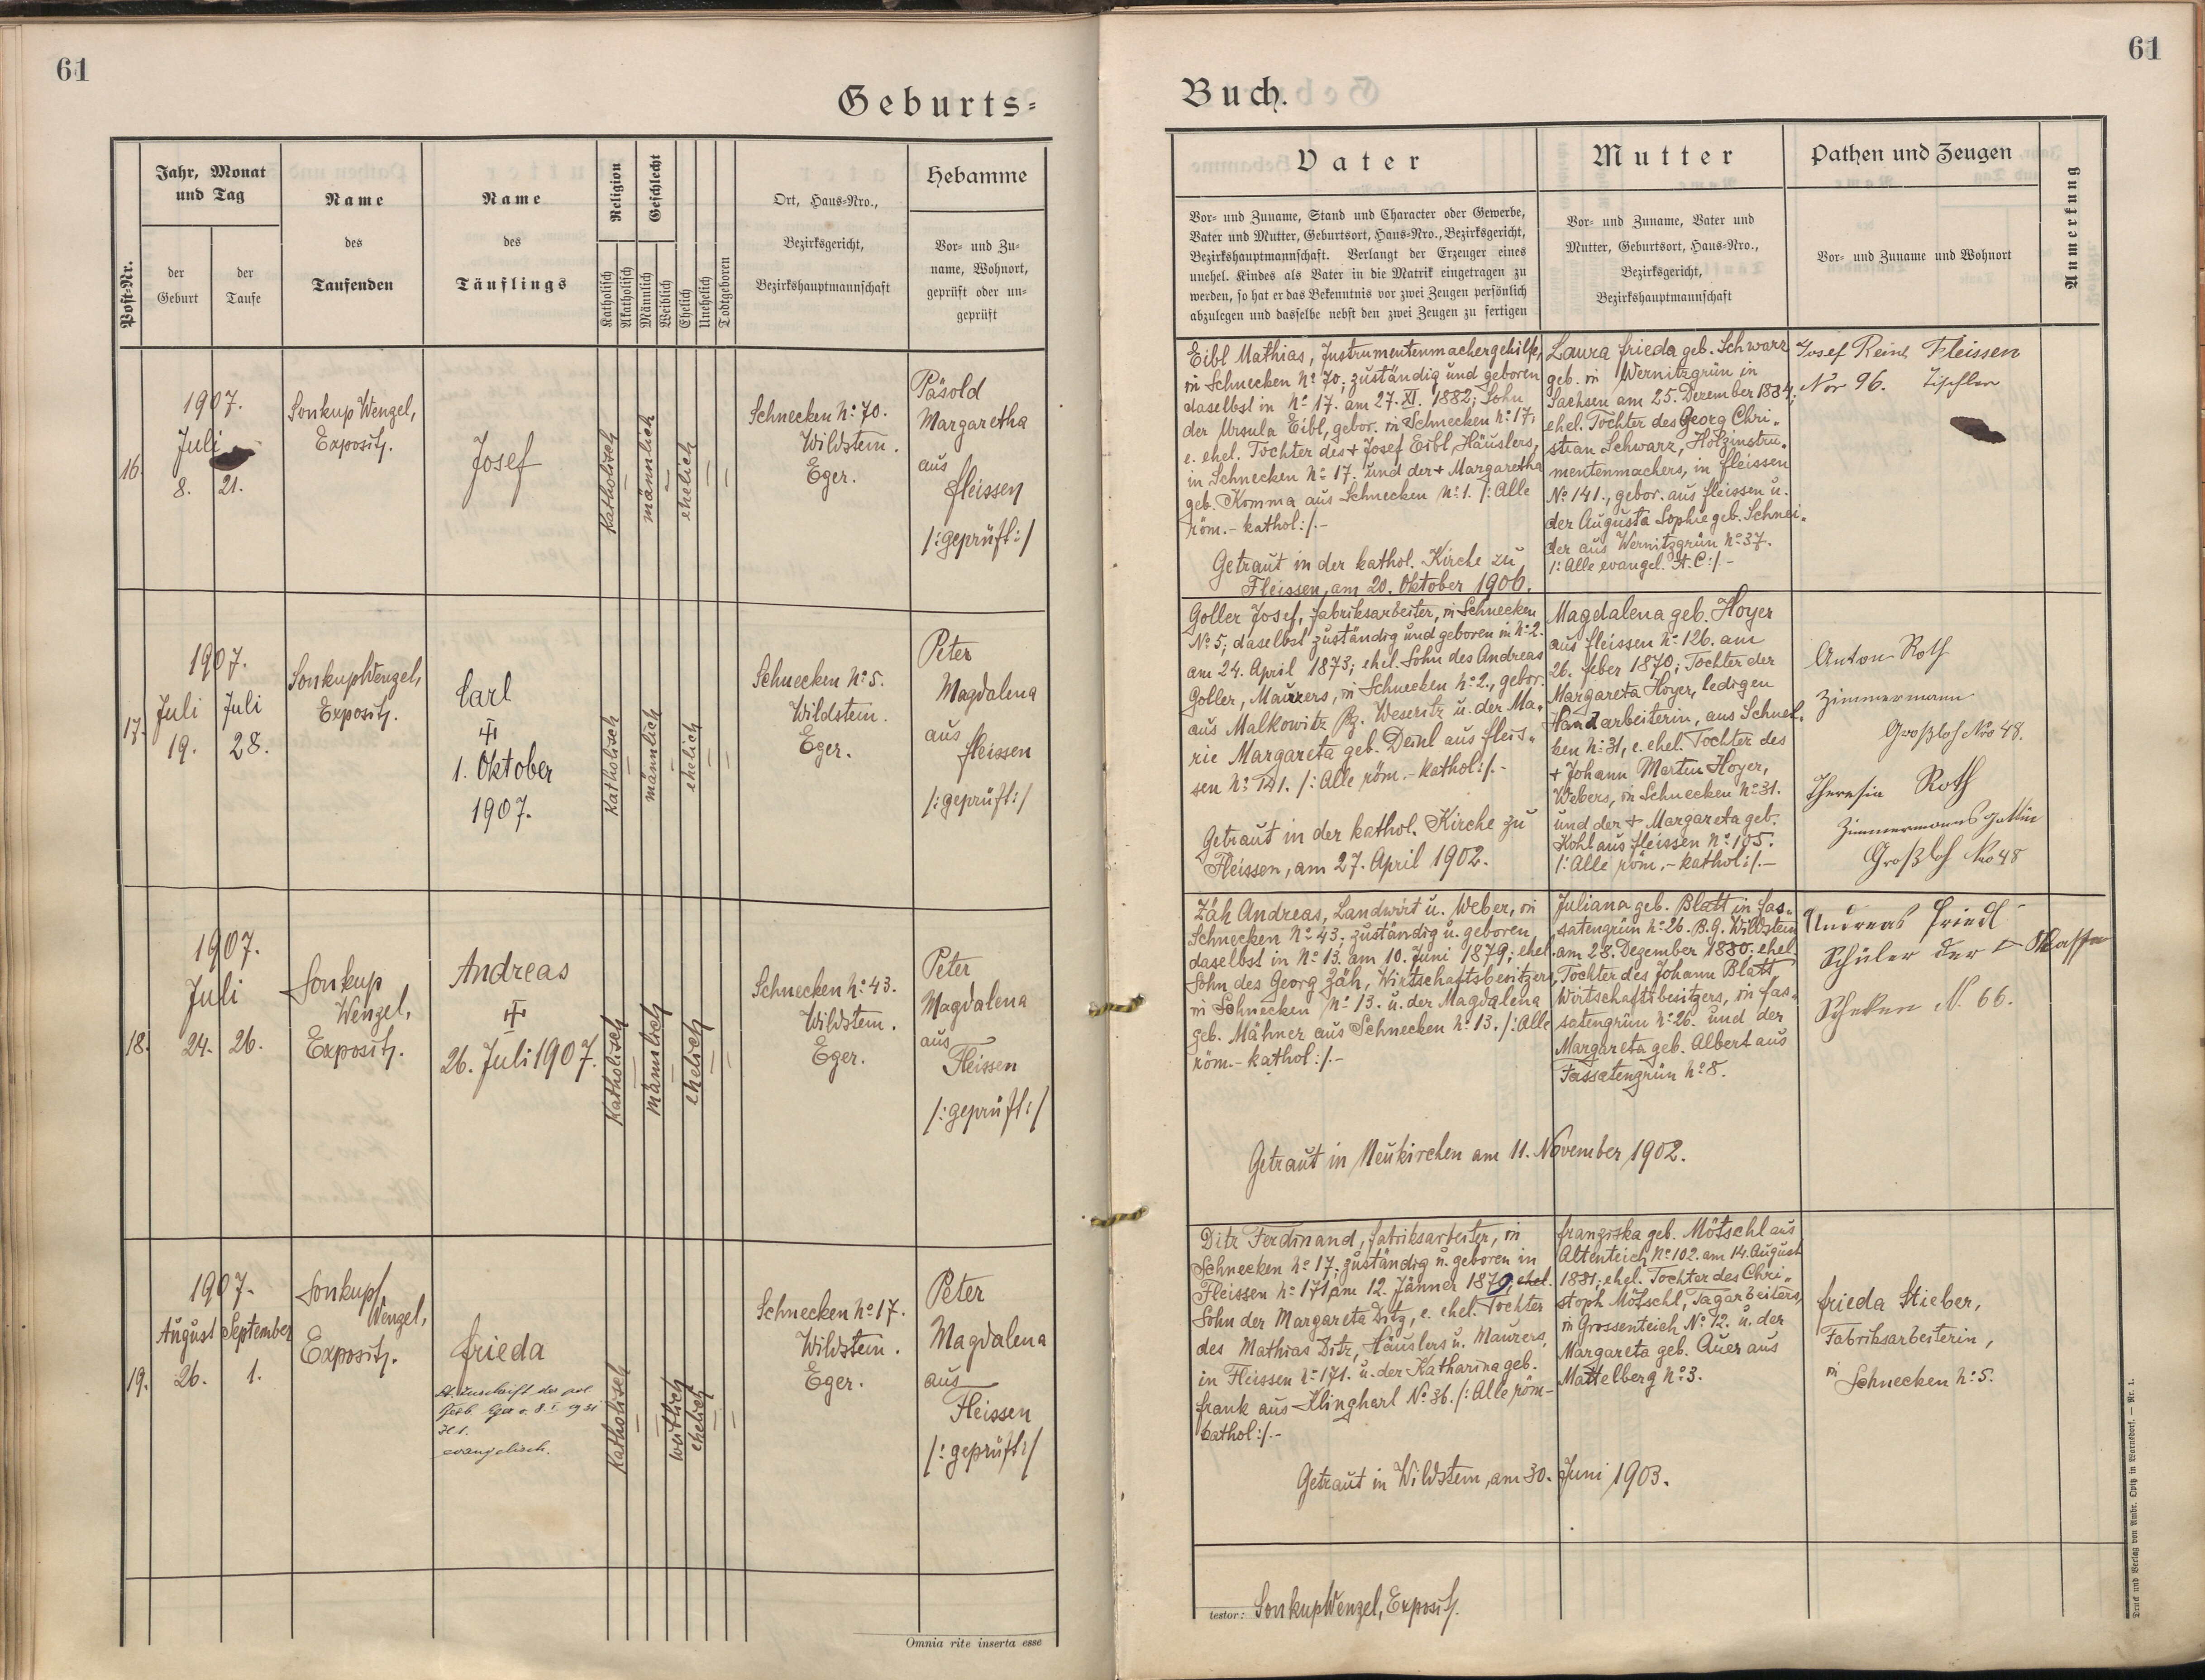 61
Geburts=
Post-Nr.
Jahr, Monat
und Tag
der
Geburt
der
Taufe
Name
des
Taufenden
Name
des
Täuflings
Religion
Katholisch
Akatholisch
Geschlecht
Männlich
Weiblich
Ehelich
Unehelich
Todtgeboren
Ort, Haus=Nro.,
Bezirksgericht,
Bezirkshauptmannschaft
Hebamme
Vor= und Zu=
name, Wohnort,
geprüft oder un=
geprüft
16.
1907.
Juli
8. 21.
Sonkup Wenzel,
Exposit.
Josef
Katholisch
männlich
ehelich
Schnecken No: 70.
Wildstein.
Eger.
Päsold
Margaretha
aus
Fleissen
/:geprüft:/
17.
1907.
Juli Juli
19. 28.
Sonkup Wenzel,
Exposit.
Carl
1. Oktober
1907.
Katholisch
männlich
ehelich
Schnecken No: 5.
Wildstein.
Eger.
Peter
Magdalena
aus
Fleissen
/:geprüft:/
18.
1907.
Juli
24. 26.
Sonkup
Wenzel,
Exposit.
Andreas
26. Juli 1907.
Katholisch
männlich
ehelich
Schnecken No: 43.
Wildstein.
Eger.
Peter
Magdalena
aus
Fleissen
/:geprüft:/
19.
1907.
August September
26. 1.
Sonkup
Wenzel,
Exposit.
Frieda
lt. Zuschrift der pol.
Bezb. Eger v. 8. I. 1931
evangelisch.
Katholisch
weiblich
ehelich
Schnecken No: 17.
Wildstein.
Eger.
Peter
Magdalena
aus
Fleissen
/:geprüft:/
Omnia rite inserta esse
61
Buch.
Vater
Vor= und Zuname, Stand und Character oder Gewerbe,
Vater und Mutter, Geburtsort, Haus=Nro., Bezirksgericht,
Bezirkshauptmannschaft. Verlangt der Erzeuger eines
unehel. Kindes als Vater in die Matrik eingetragen zu
werden, so hat er das Bekenntnis vor zwei Zeugen persönlich
abzulegen und dasselbe nebst den zwei Zeugen zu fertigen
Mutter
Vor= und Zuname, Vater und
Mutter, Geburtsort, Haus=Nro.,
Bezirksgericht,
Bezirkshauptmannschaft
Pathen und Zeugen
Vor= und Zuname und Wohnort
Anmerkung
Eibl Mathias, Instrumentenmachergehilfe,
in Schnecken No: 70; zuständig und geboren
daselbst in No: 17. am 27. XI. 1882; Sohn
der Ursula Eibl, gebor. in Schnecken No: 17;
e. ehel. Tochter des + Josef Eibl, Häuslers,
in Schnecken No: 17. und der + Margaretha
geb. Komma aus Schnecken No: 1. /: Alle
röm.- kathol:/.-
Getraut in der kathol. Kirche zu
Fleissen, am 20. Oktober 1906.
Laura Frieda geb. Schwarz
geb. in Wernitzgrün in
Sachsen am 25. Dezember 1884;
ehel. Tochter des Georg Chri„
stian Schwarz, Holzinstru„
mentenmachers, in Fleissen
No: 141., gebor. aus Fleissen u.
der Augusta Sophie geb. Schnei„
der aus Wernitzgrün No: 37.
/: Alle evangel. A. C:/.-
Josef Reinl Fleissen
Nro 96. Tischler
Goller Josef, Fabriksarbeiter, in Schnecken
No: 5; daselbst zuständig und geboren in No: 2.
am 24. April 1873; ehel. Sohn des Andreas
Goller, Maurers, in Schnecken No: 2., gebor.
aus Malkowitz Bz. Weseritz u. der Ma„
rie Margareta geb. Deinl aus Fleis„
sen No: 141. /: Alle röm.- kathol:/.-
Getraut in der kathol. Kirche zu
Fleissen, am 27. April 1902.
Magdalena geb. Hoyer
aus Fleissen No: 126. am
26. Feber 1870; Tochter der
Margareta Hoyer, ledigen
Handarbeiterin, aus Schnek„
ken No: 31, e. ehel. Tochter des
+ Johann Martin Hoyer,
Webers, in Schnecken No: 31.
und der + Margareta geb.
Kohl aus Fleissen No: 105.
/: Alle röm.- kathol:/.-
Anton Roth
Zimmermann
Großloh Nro 48.
Theresia Roth
Zimmermanns Gattin
Großloh Nro 48
Zäh Andreas, Landwirt u. Weber, in
Schnecken No: 43; zuständig u. geboren
daselbst in No: 13. am 10. Juni 1879; ehel.
Sohn des Georg Zäh, Wirtschaftsbesitzers,
in Schnecken No: 13. u. der Magdalena
geb. Mähner aus Schnecken No: 13. /: Alle
röm.- kathol:/.-
Juliana geb. Blatt in Fas„
satengrün No: 26. B. G. Wildstein
am 28. Dezember 1880; ehel.
Tochter des Johann Blatt,
Wirtschaftsbesitzers, in Fas„
satengrün No: 26. und der
Margareta geb. Albert aus
Fassatengrün No: 8.
Getraut in Neukirchen am 11. November 1902.
Andreas Friedl
Schüler der Klasse
N. 66.
Ditz Ferdinand, Fabriksarbeiter, in
Schnecken No: 17; zuständig u. geboren in
Fleissen No: 171 am 12. Jänner 1879, ehel.
Sohn der Margareta Ditz, e. ehel. Tochter
des Mathias Ditz, Häuslers u. Maurers,
in Fleissen No: 171. u. der Katharina geb.
Frank aus Klinghart No: 36. /: Alle röm-
kathol:/.-
Franziska geb. Mötschl aus
Altenteich No: 102. am 14. August
1881; ehel. Tochter des Chri„
stoph Mötschl, Tagarbeiters,
in Grossenteich No: 12. u. der
Margareta geb. Auer aus
Mattelberg No: 3.
Getraut in Wildstein, am 30. Juni 1903.
Frieda Stieber,
Fabriksarbeiterin,
in Schnecken No: 5.
testor: Sonkup Wenzel, Exposit.
Druck und Verlag von Ambr. Opitz in Warnsdorf. — Nr. 1.